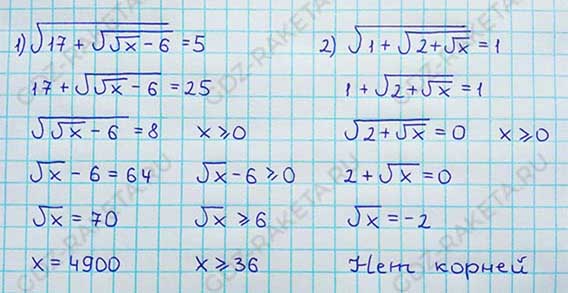 1) √(17 + √(√x − 6)) = 5
17 + √(√x − 6) = 25
√(√x − 6) = 8 x ⩾ 0
√x − 6 = 64 √x − 6 ⩾ 0
√x = 70 √x ⩾ 6
x = 4900 x ⩾ 36
2) √(1 + √(2 + √x)) = 1
1 + √(2 + √x) = 1
√(2 + √x) = 0 x ⩾ 0
2 + √x = 0
√x = −2
Нет корней
GDZ-RAKETA.RU